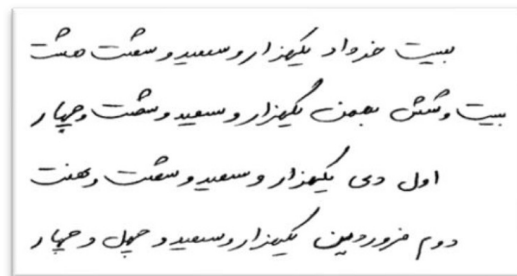 بیست خرداد یکهزار و سیصد و شصت هشت
بیست و شش بهمن یکهزار و سیصد و شصت و چهار
اول دی یکهزار و سیصد و شصت و هفت
دوم فروردین یکهزار و سیصد و چهل و چهار